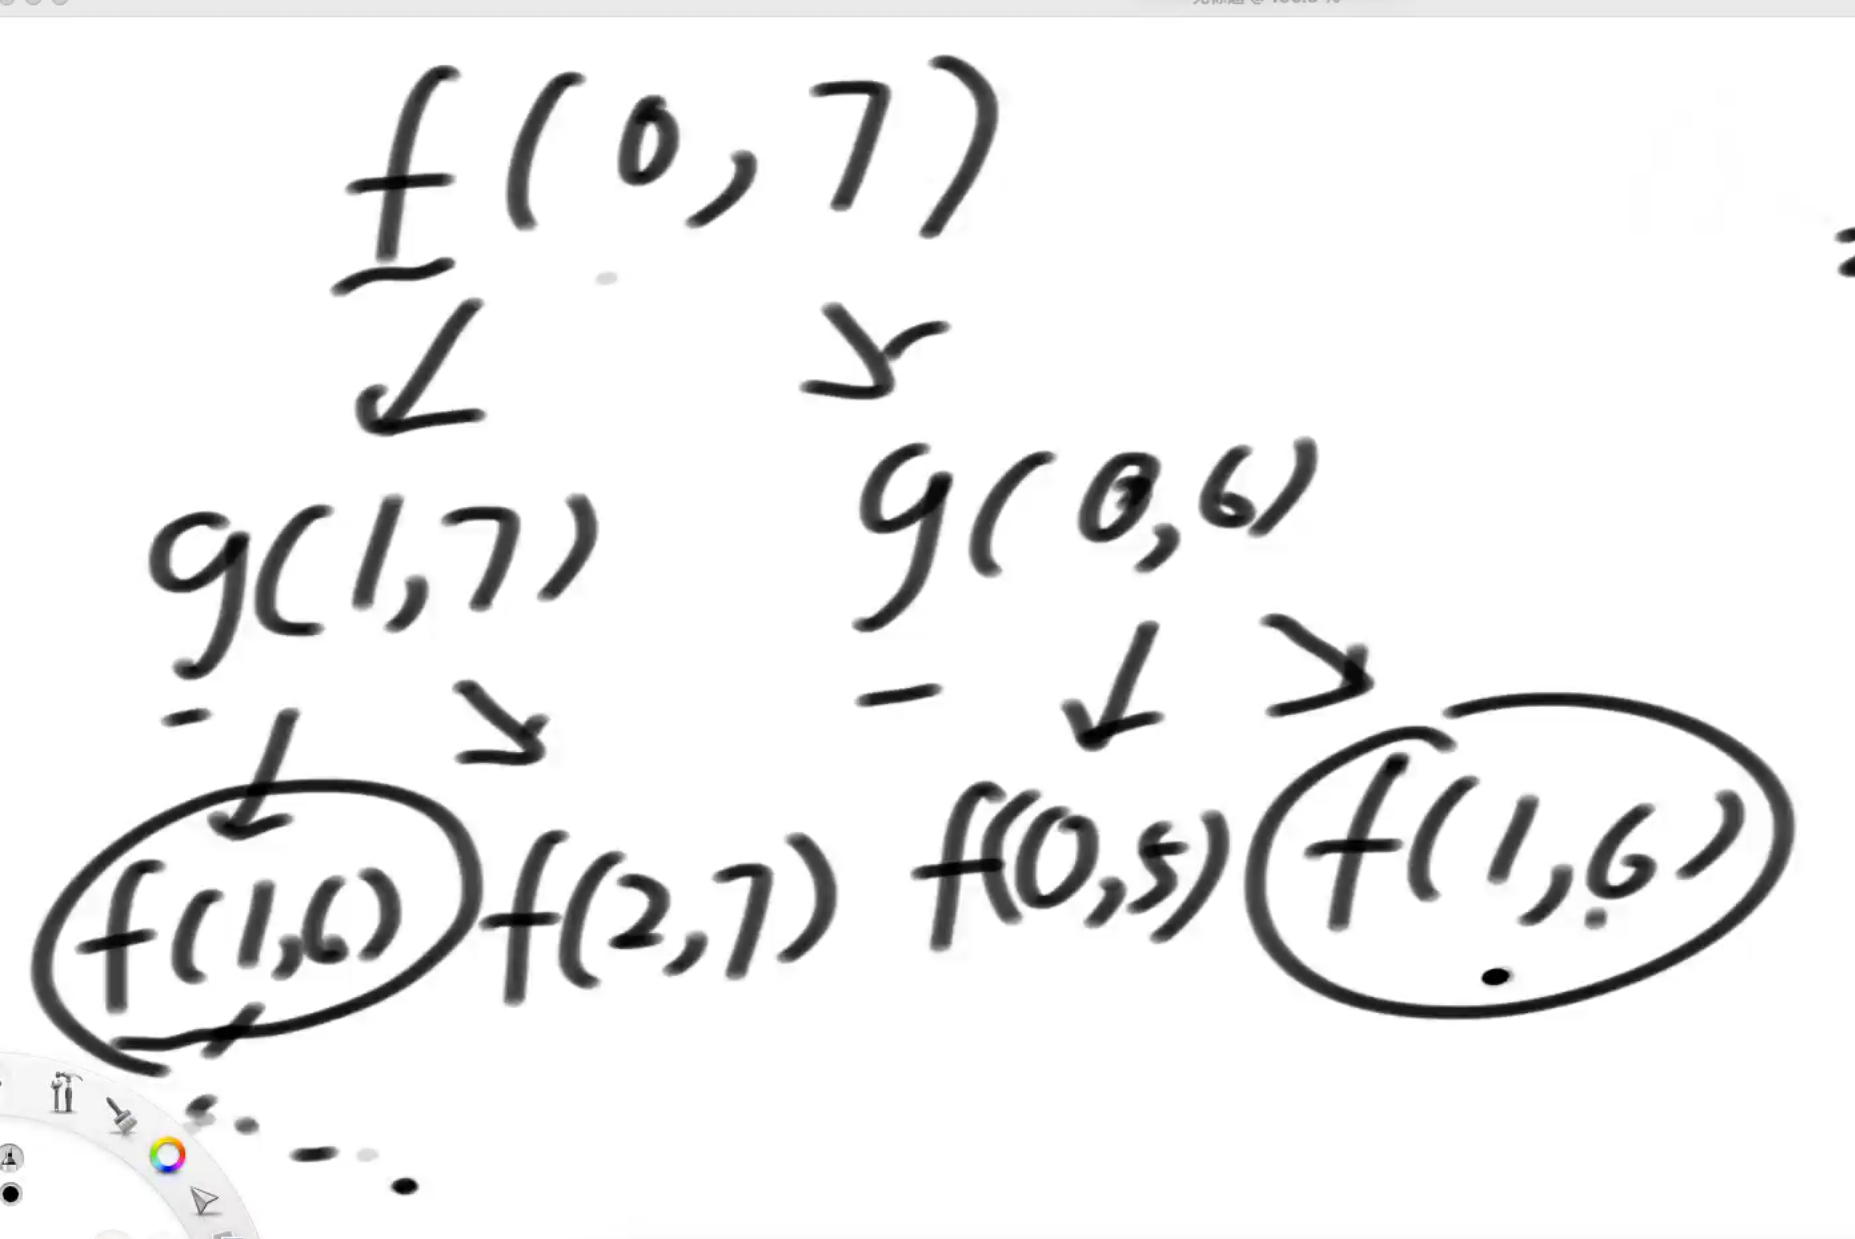 f(0,7)
g(1,7) g(0,6)
f(1,6) f(2,7) f(0,5) f(1,6)